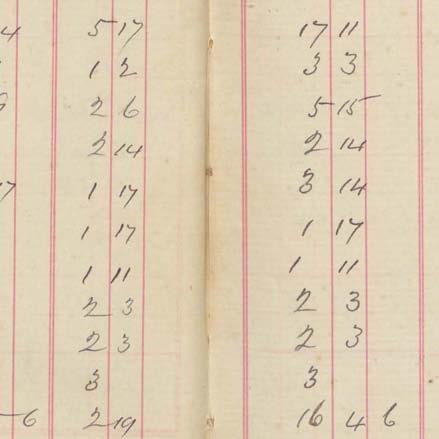 4 5 17 17 11
1 2 3 3
2 6 5 15
2 14 2 14
17 1 17 3 14
1 17 1 17
1 11 1 11
2 3 2 3
2 3 2 3
3 3
6 2 19 16 4 6